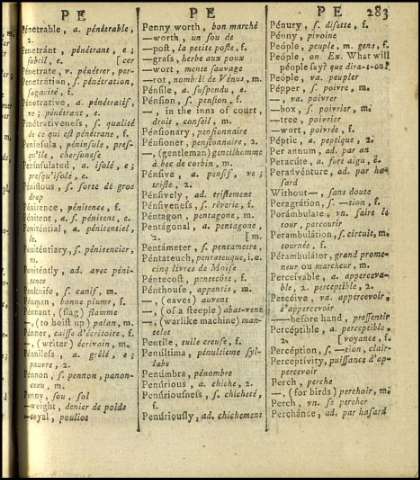 P E
P E
P E
283
Penetrable, a. pénétrable,
2.
Penetránt, pénétrant, e;
subtil, e. [cer
Penetrate, v. pénétrer, per-
Penetrátion, s. pénétration,
sagacité, f.
Penetrative, a. pénétratif,
ve; pénétrant, e.
Penetrativeness, s. qualité
de ce qui est pénétrant, f.
Península, péninsule, pres-
qu'ile, chersonese
Peninsulated, a. isolé, e;
presqu'isole, e.
s. sorte de gros
drap
Pénitence, pénitence, f.
Pénitent, a. s. pénitent, e.
Penitential, a. pénitentiel,
le.
Peniténtiary, s. pénitencier,
m.
Penitently, ad. avec péni-
tence
Penknife, s. canif, m.
Pénman, bonne plume, f.
Pénnant, (flag) flamme
—, (to hoist up) palan, m.
Pénner, caisse d'écritoire, f.
—, (writer) écrivain, m.
Pénniless, a. grélé, e;
pauvre, 2.
Pénnon, s. pennon, panon-
ceau, m.
Penny, sou, sol
—weight, denier de poids
—royal, pouliot
Penny worth, bon marché
—worth, un sou de
—post, la petite poste, f.
—grass, herbe aux poux
—wort, mente sauvage
—rot, nombril de Vénus, m.
Pénsile, a. suspendu, e.
Pénsion, s. pension, f.
—, in the inns of court
droit, conseil, m.
Pénsionary, pensionnaire
Pénsioner, pensionnaire, 2.
—, (gentleman) gentilhomme
à bec de corbin, m.
Pénsive, a. pensif, ve;
triste, 2.
Pénsively, ad. tristement
Pénsiveness, s. réverie, f.
Pentagon, pentagone, m.
Pentágonal, a. pentagone,
2. [m.
Pentámeter, s. pentametre,
Péntateuch, pentateuque, i.e.
cinq livres de Moïse
Péntecost, pentecôte, f.
Pénthouse, appentis, m.
—, (eaves) auvent
—, (of a steeple) abat-vent
—, (warlike machine) man-
telet
Pentile, tuile creuse, f.
Penúltima, pénultieme syl-
labe
Penúmbra, pénombre
Penúrious, a. chiche, 2.
Penúriousness, s. chicheté,
f.
Penúriously, ad. chichement
Pénury, s. disette, f.
Péony, pivoine
People, peuple, m. gens, f.
People, on Ex. What will
people say? que dira-t-on?
Péople, va. peupler
Pépper, s. poivre, m.
—, va. poivrer
—box, s. poivrier, m.
—tree, poivrier
—wort, poivrée, f.
Péptic, a. peptique, 2.
Per annum, ad. par an
Peracúte, a. fort aigu, ë.
Peradvénture, ad. par ha-
sard
Without—, sans doute
Peragrátion, s. —tion, f.
Perámbulate, vn. faire le
tour, parcourir
Perambulátion, s. circuit, m.
tournée, f.
Perámbulator, grand prome-
neur ou marcheur, m.
Percéivable, a. appercev-
able, 2. perceptible, 2.
Percéive, va. appercevoir,
s'appercevoir
—before hand, pressentir
Percéptible, a. perceptible,
2. [voyance, f.
Percéption, s. —tion, clair-
Perceptivity, puissance d'ap-
percevoir
Perch, perche
—, (for birds) perchoir, m.
Perch, vn. se percher
Perchánce, ad. par hasard